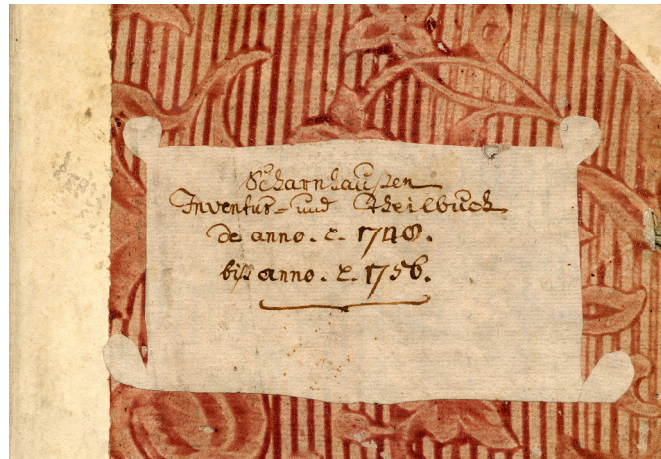 Scharnhaußen
Inventur- und Theilbuch
de anno. e. 1740.
biß anno. e. 1756.